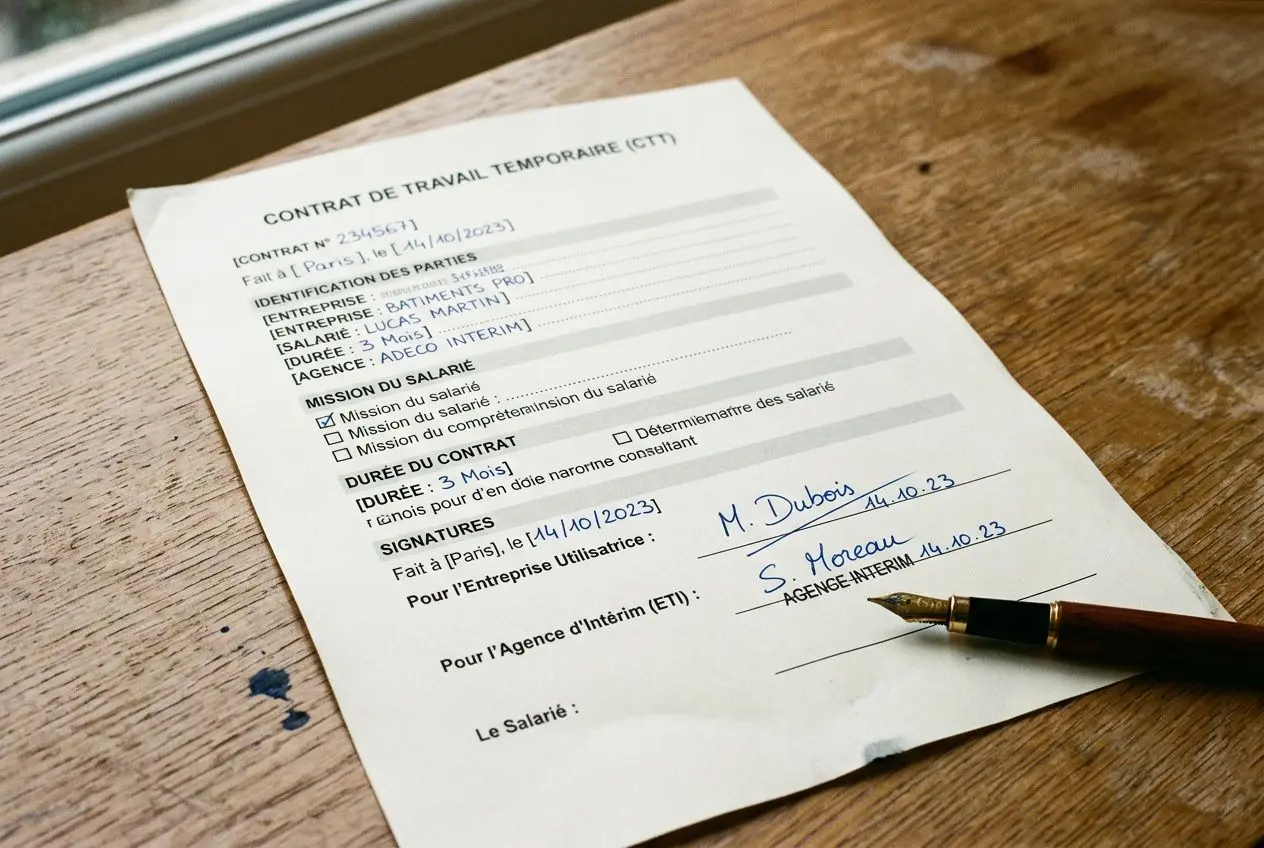 CONTRAT DE TRAVAIL TEMPORAIRE (CTT)
[CONTRAT N° 234567]
Fait à [Paris], le [14/10/2023]
IDENTIFICATION DES PARTIES
[ENTREPRISE :
[ENTREPRISE : BATIMENTS PRO]
[SALARIÉ : LUCAS MARTIN]
[DURÉE : 3 Mois]
[AGENCE : ADECO INTERIM]
MISSION DU SALARIÉ
Mission du salarié
Mission du salarié :
Mission du comprètemınsion du salarié
DURÉE DU CONTRAT
Détermiemartre des salarié
[DURÉE : 3 Mois]
pour d'en doie narorıne consaltant
SIGNATURES
Fait à [Paris], le [14/10/2023]
Pour l'Entreprise Utilisatrice :
M. Dubois 14.10.23
Pour l'Agence d'Intérim (ETI) :
S. Moreau 14.10.23
AGENGE INTERIM
Le Salarié :